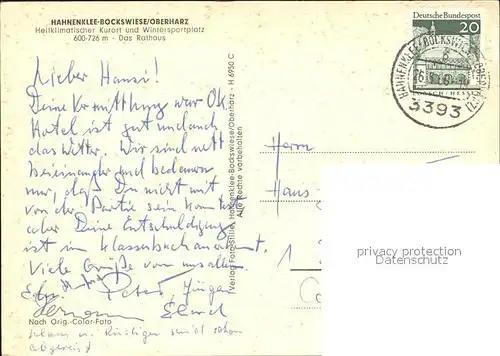 HAHNENKLEE-BOCKSWIESE/OBERHARZ
Heilklimatischer Kurort und Wintersportplatz
600-726 m - Das Rathaus
Lieber Hansi!
Deine Vermittlung war OK
Hotel ist gut und auch
das Wetter. Wir sind nett
beieinander und bedauern
nur, daß Du nicht mit
von der Partie sein konntest
aber Deine Entschuldigung
ist im Klassenbuch anerkannt.
Viele Grüße von uns allen.
Peter Jürgen
Nach Orig.-Color-Foto
sind schon
abgereist
Verlag Foto-Stille, Hahnenklee-Bockswiese/Oberharz - H 6950 C
Alle Rechte vorbehalten
Deutsche Bundespost
20
HAHNENKLEE-BOCKSWIESE
3393
Herrn
Hans
privacy protection
Datenschutz